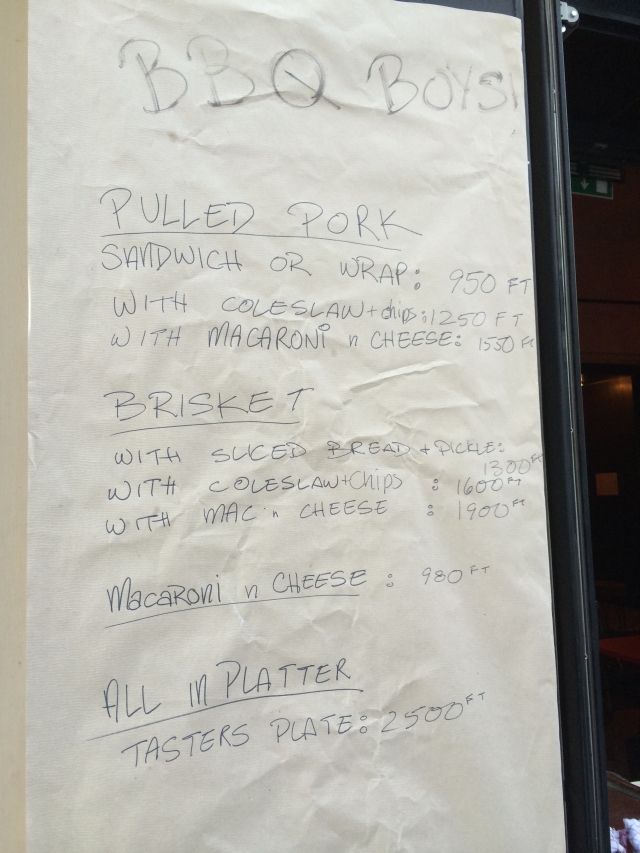 BBQ BOYS
PULLED PORK
SANDWICH OR WRAP: 950 FT
WITH COLESLAW + chips: 1250 FT
WITH MACARONi n CHEESE: 1550 Ft
BRISKET
WITH SLICED BREAD + PICKLE:
1300 FT
WITH COLESLAW + Chips : 1600 FT
WITH MAC n CHEESE : 1900 FT
MacaRoni n CHEESE : 980 FT
ALL in PLATTER
TASTERS PLATE: 2500 FT